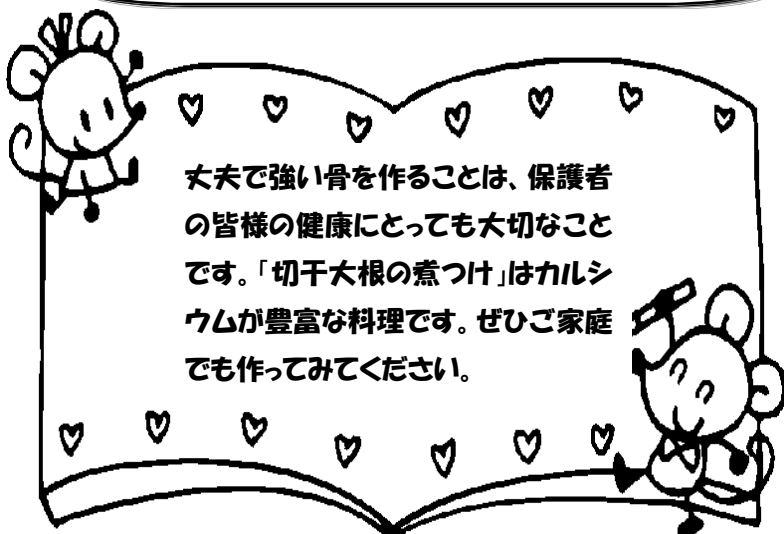 丈夫で強い骨を作ることは、保護者
の皆様の健康にとっても大切なこと
です。「切干大根の煮つけ」はカルシ
ウムが豊富な料理です。ぜひご家庭
でも作ってみてください。